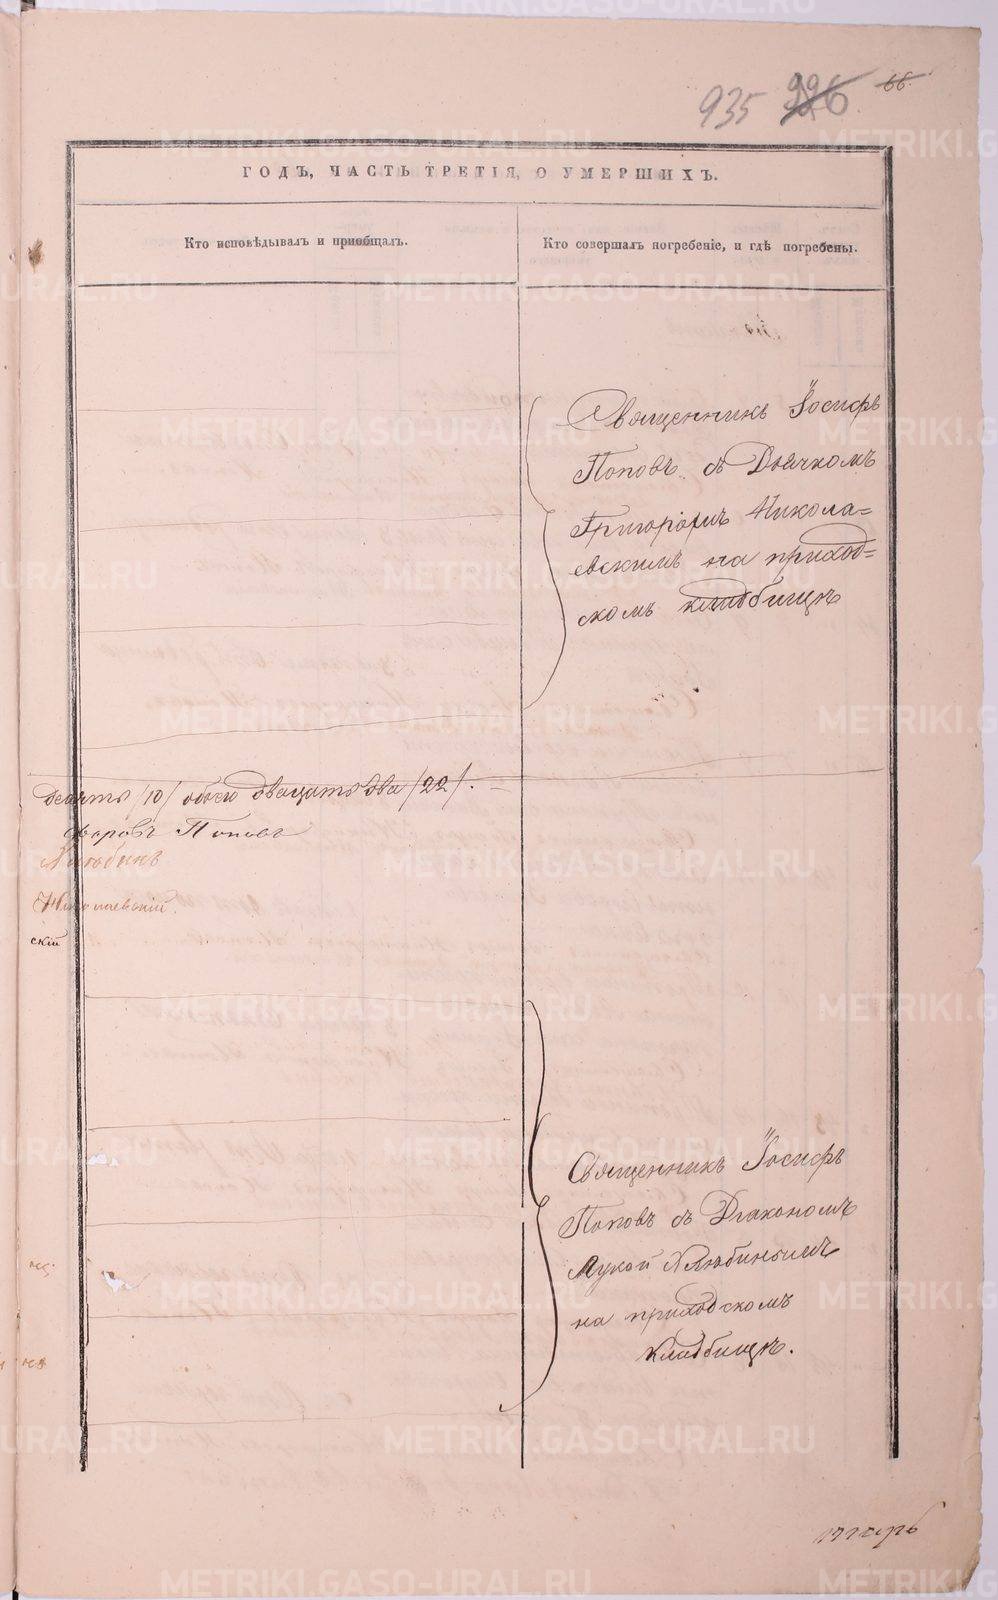 935 226 66.
ГОДЪ, ЧАСТЬ ТРЕТІЯ, О УМЕРШИХЪ.
Кто исповѣдывалъ и пріобщалъ.
Кто совершалъ погребеніе, и гдѣ погребены.
Священникъ Іосифъ
Поповъ съ Дьячкомъ
Григоріемъ Никола=
евскимъ на приход=
скомъ кладбищѣ
десять /10/ обоего двацать два /22/. =
Поповъ
Хлюбинъ
Николаевскій.
скій
Священникъ Іосифъ
Поповъ съ Діакономъ
Лукой Хлюбинымъ
на приходскомъ
кладбищѣ.
METRIKI.GASO-URAL.RU